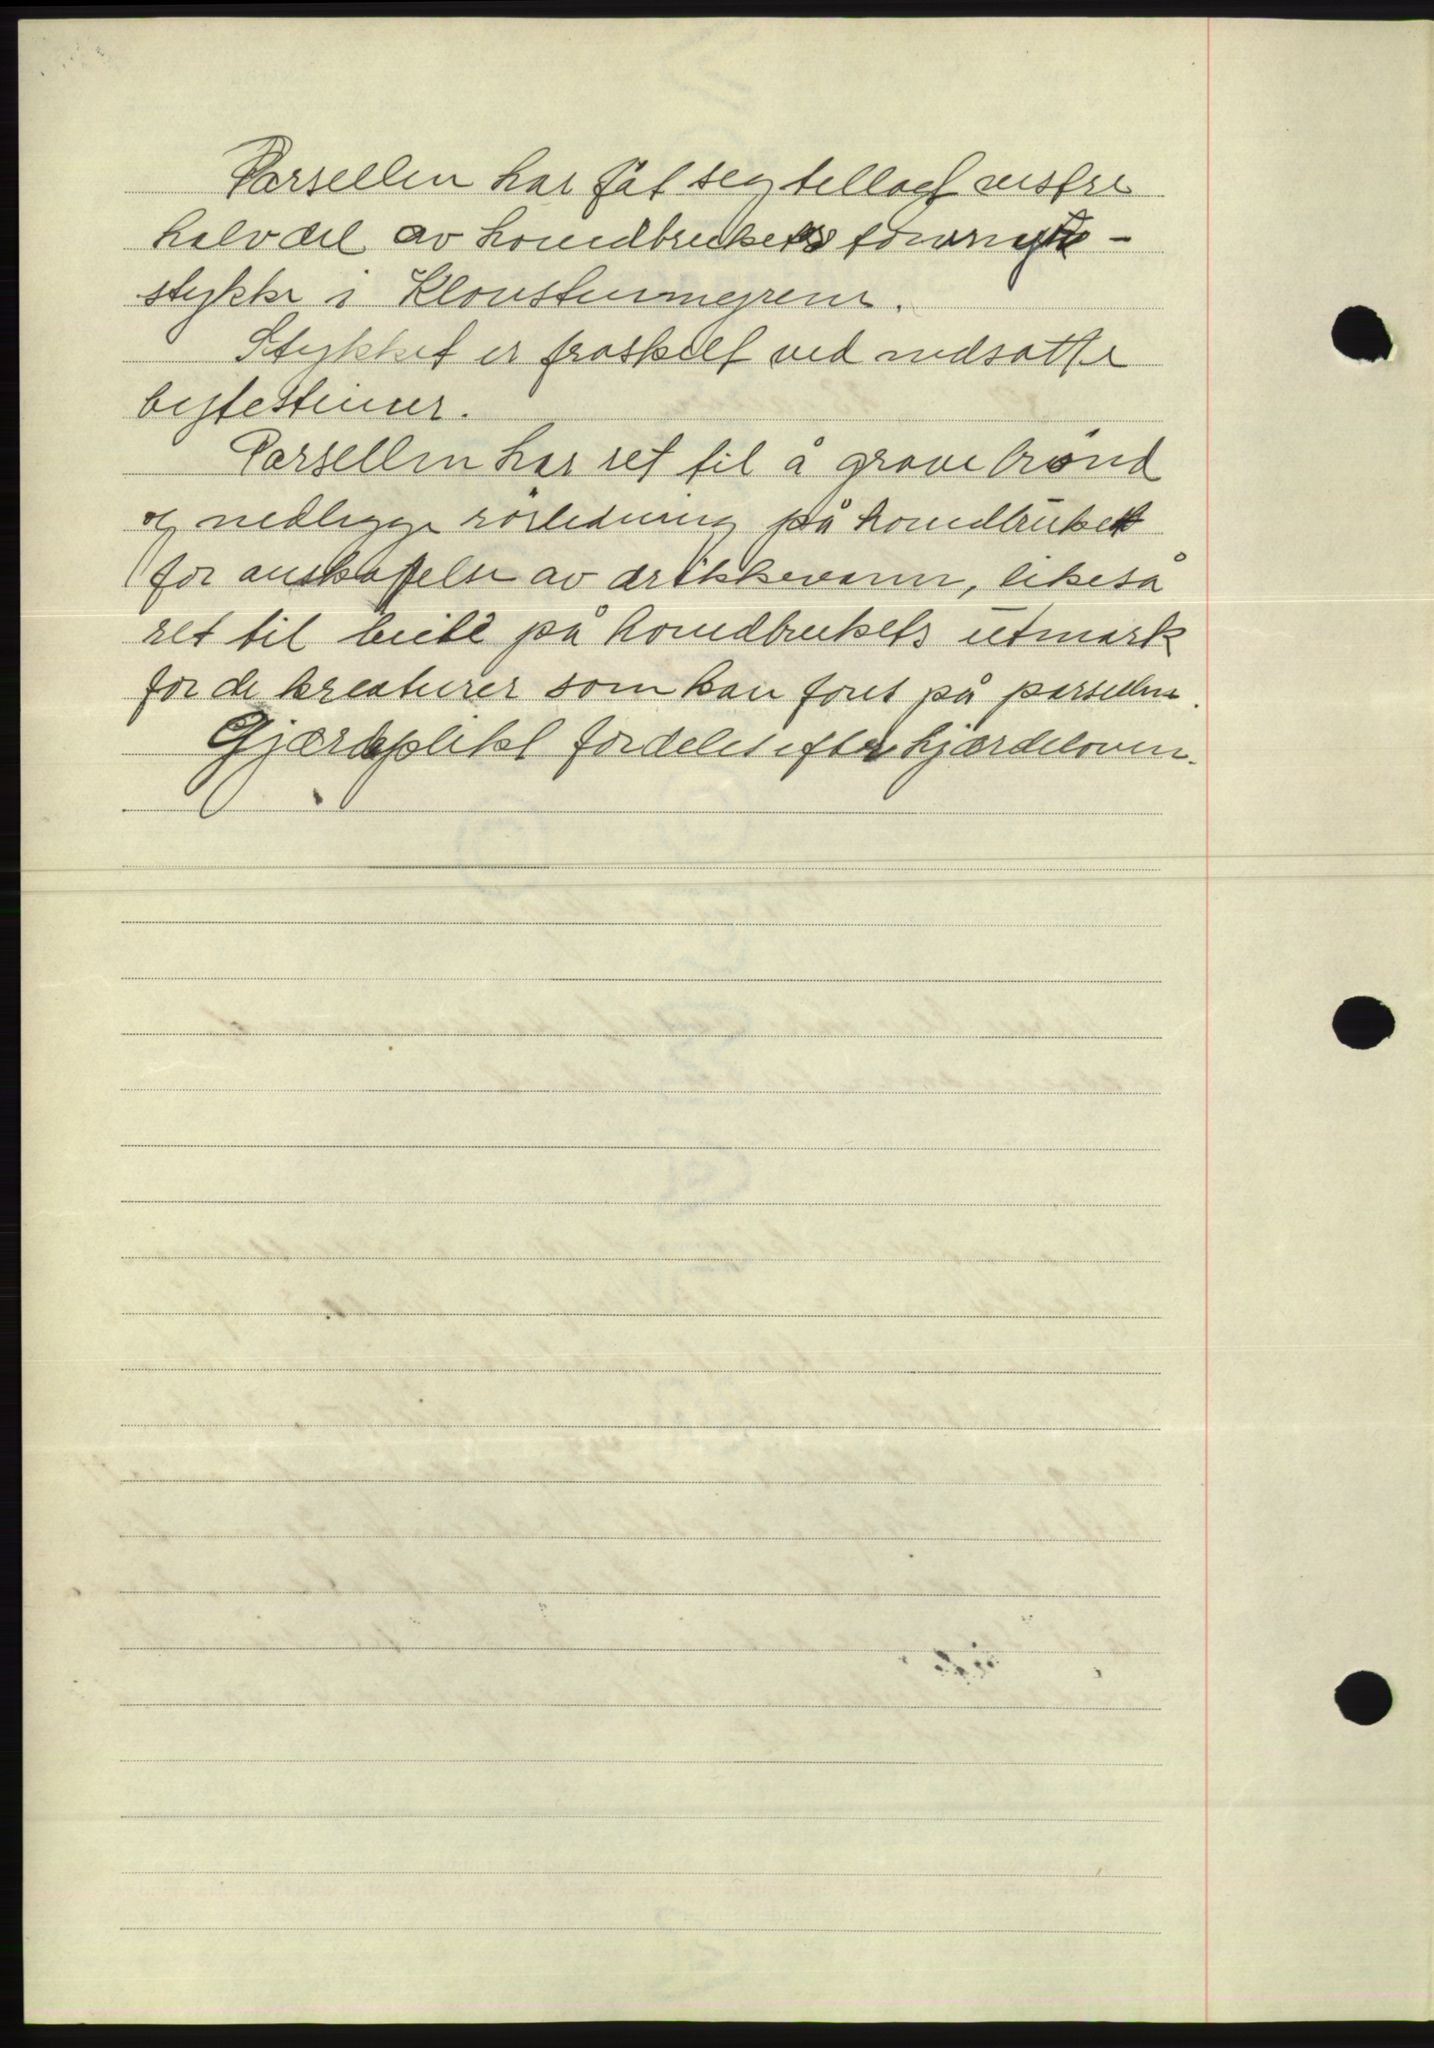 Parsellen har fåt seg tillagt vestre
halvdel av hovedbrukets torvmyr-
stykke i Kloustermyrene.
Stykket er fraskelt ved nedsatte
bytesteiner.
Parsellen har ret til å grave brønd
og nedlegge rørledning på hovedbruket
for anskaffelse av drikkevann, likeså
ret til beite på hovedbrukets utmark
for de kreaturer som kan fores på parsellen.
Gjærdeplikt fordeles efter hjærdeloven.